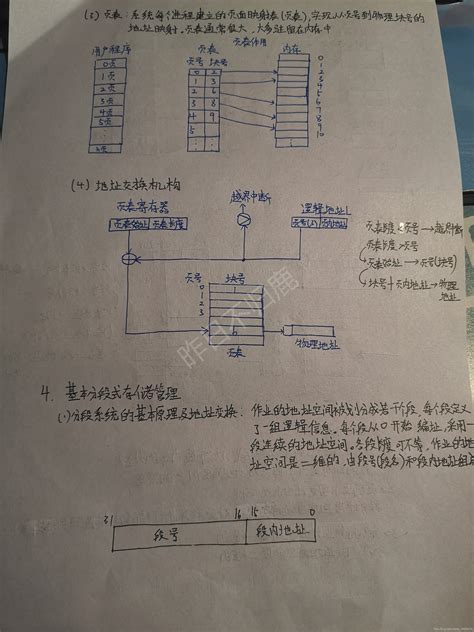 (3) 页表：系统每个进程建立的页面映射表(页表),实现从页号到物理块号的
地址映射,页表通常很大,大多驻留在内存中
用户程序 页表 页表作用 内存
页号 块号
0页 0 2 0
1页 1 3 1
2页 2 6 2
3页 3 8 3
4页 4 9 4
5页 5 5
6
7
8
9
10
n页
(4) 地址变换机构
页表寄存器 越界中断 逻辑地址L
页表始址 页表长度 页号(3) 页内地址
页表长度<页号→越界中断
页表长度>页号
页表始址→页号(块号)
块号+页内地址→物理地址
页号 块号
0
1
2
3 b
页表 物理地址
昨日不归鹿
4. 基本分段式存储管理
(1)分段系统的基本原理及地址变换： 作业的地址空间被划分成若干个段,每个段定义
了一组逻辑信息。每个段从0开始编址,采用一
段连续的地址空间。各段长度可不等,作业的地
址空间是二维的,由段号(段名)和段内地址组成
31 16 15 0
段号 段内地址